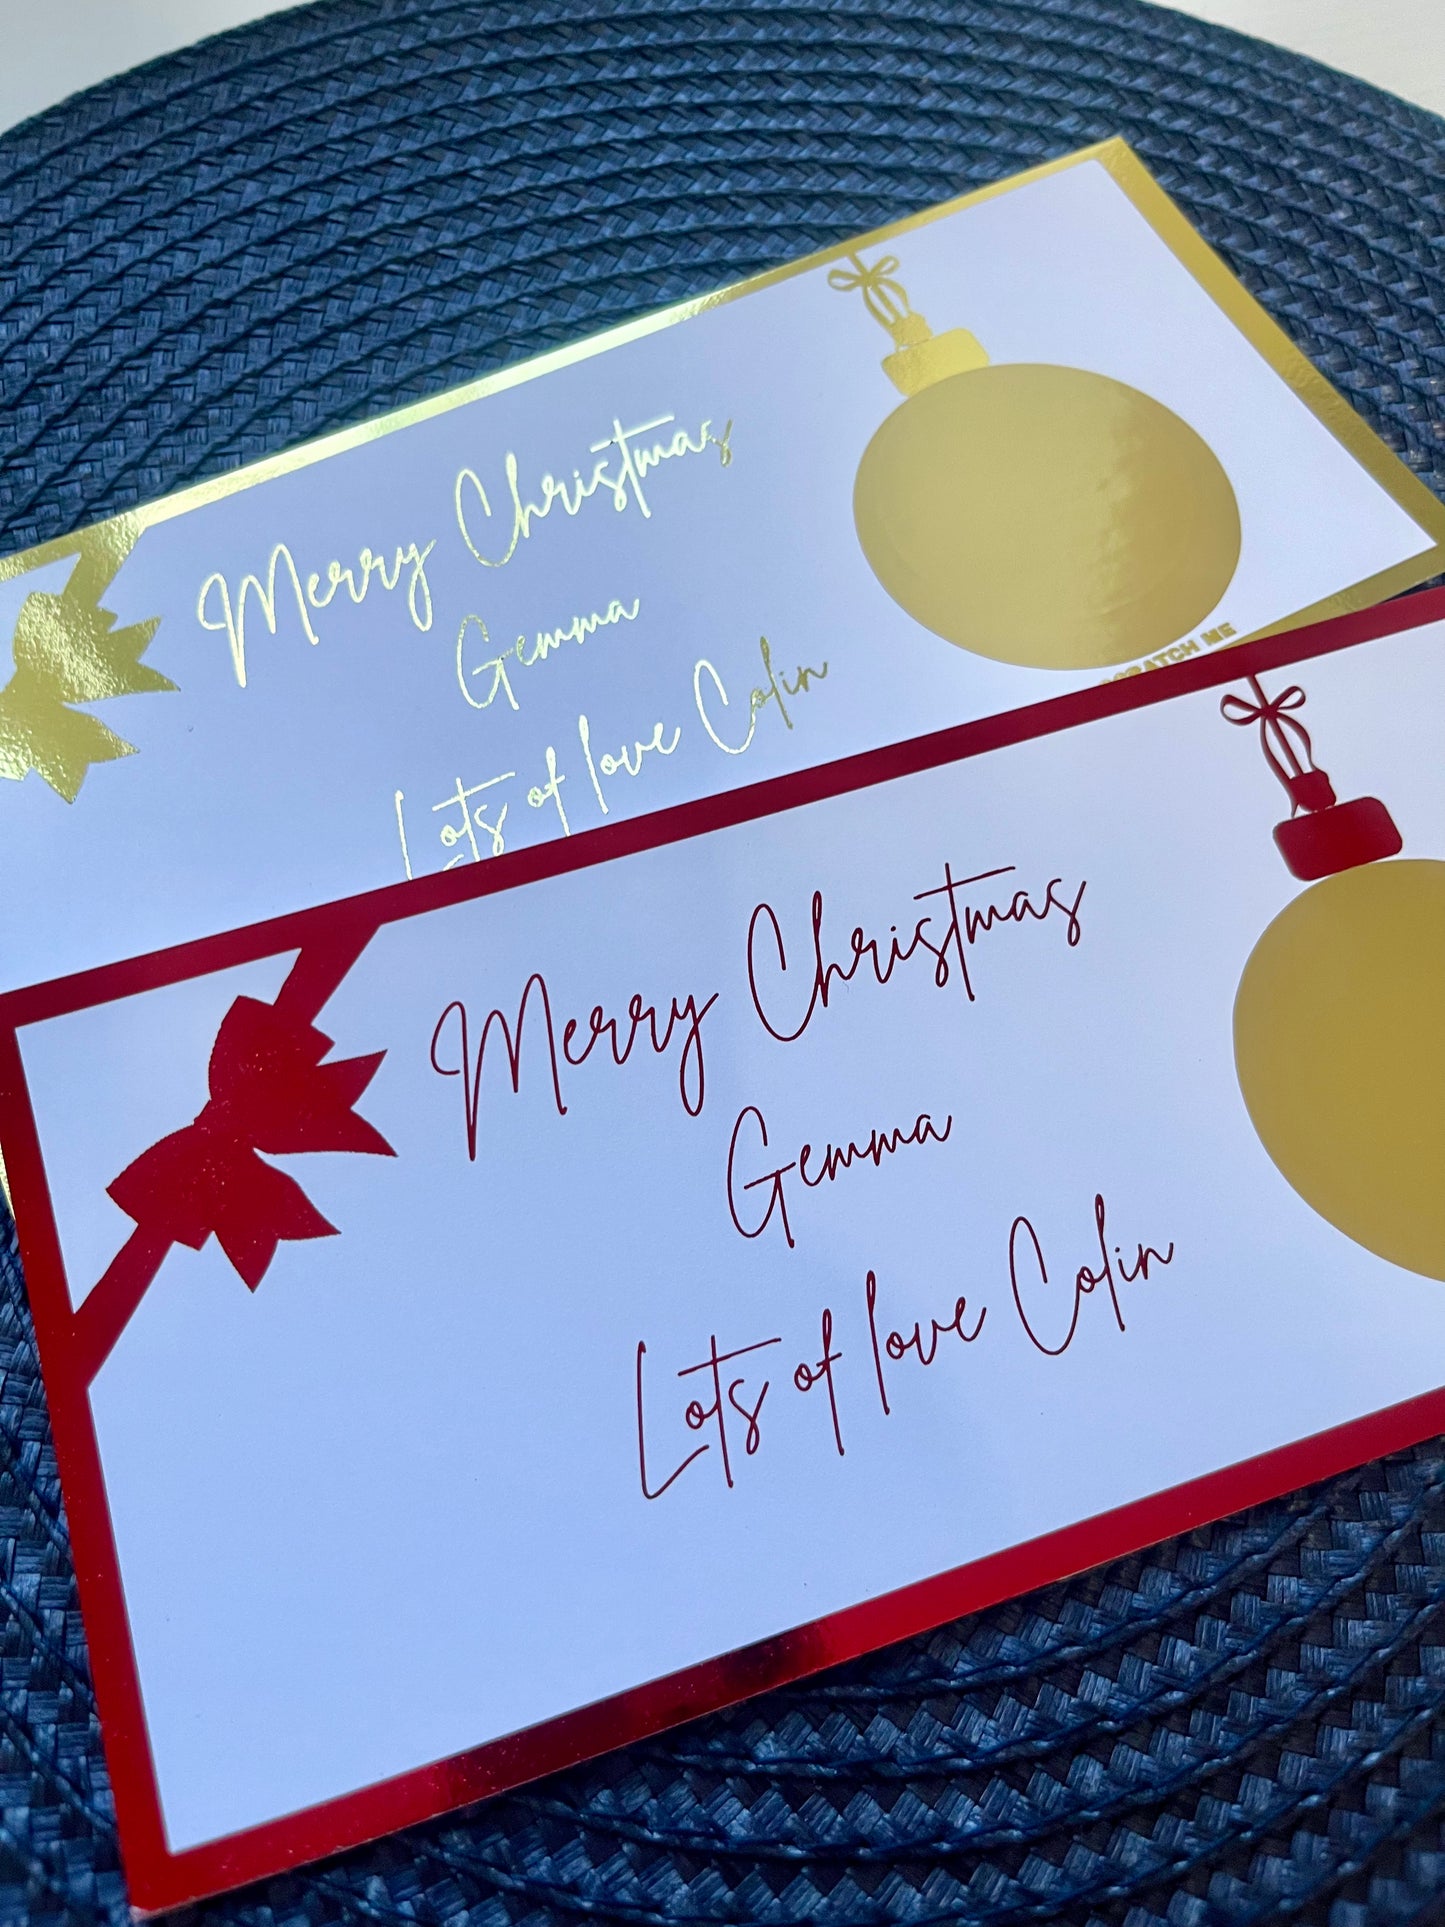 Merry Christmas
Gemma
Lots of love Colin
SCRATCH ME
Merry Christmas
Gemma
Lots of love Colin